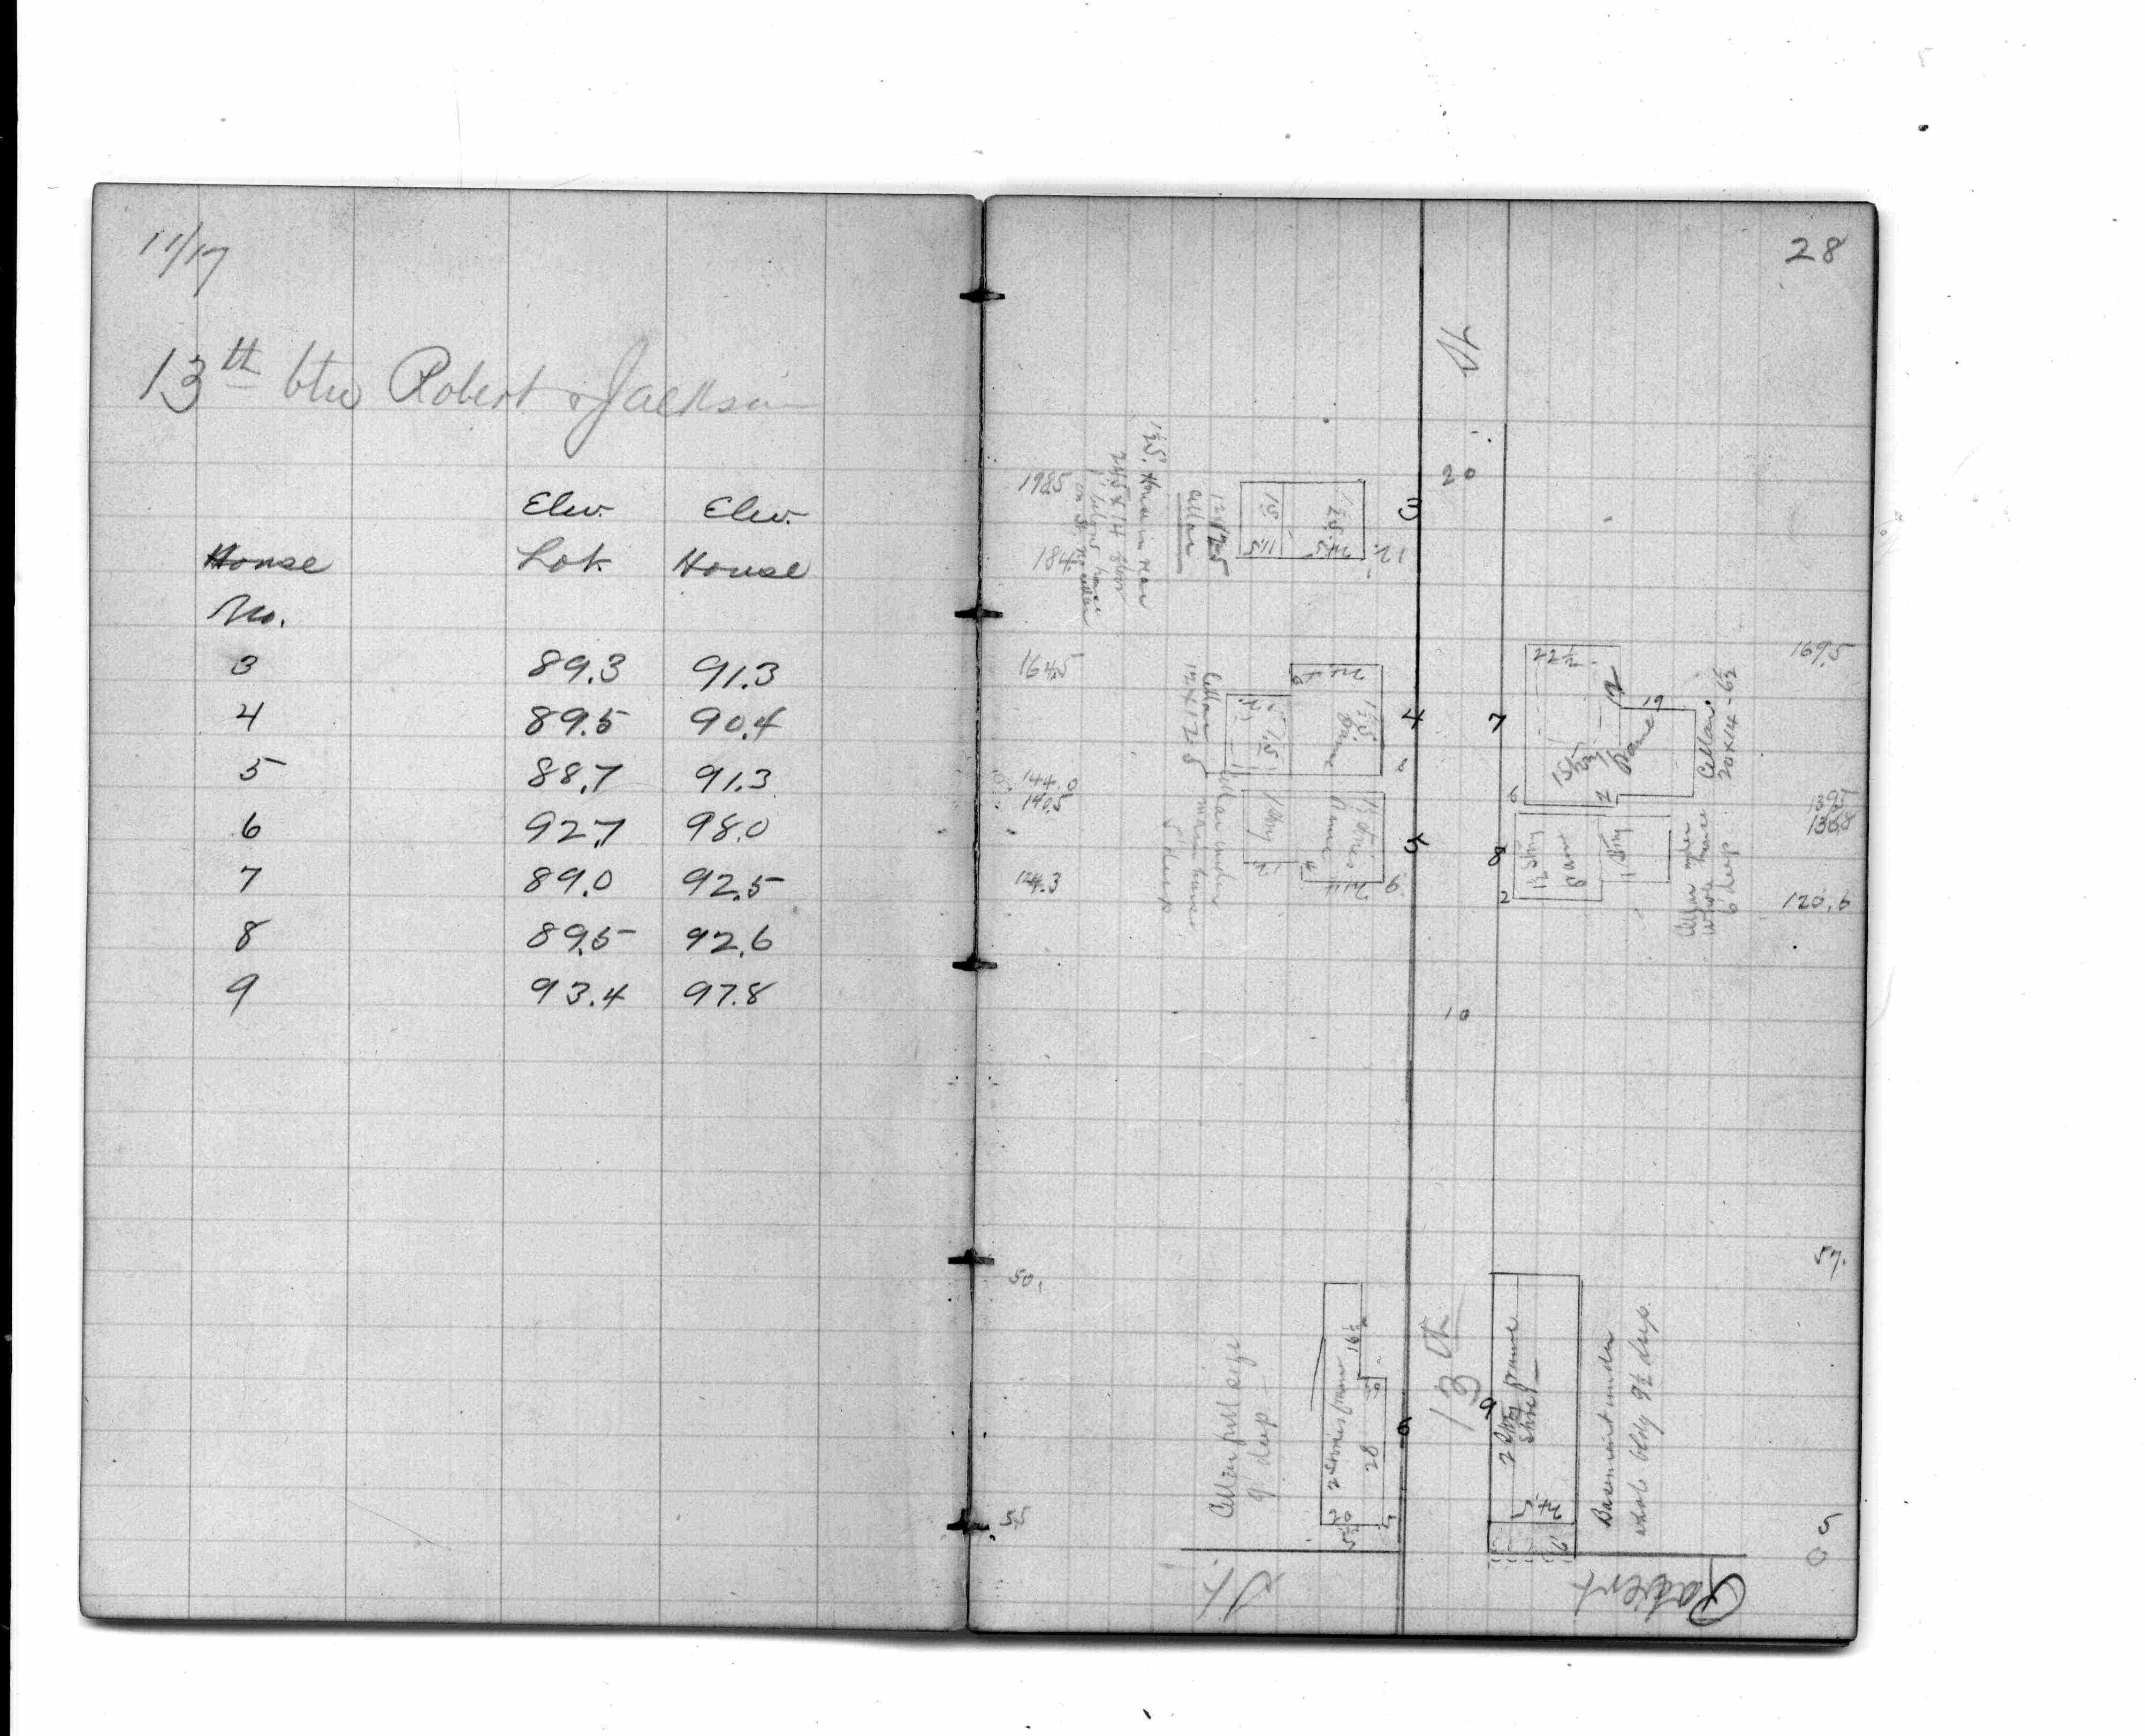 11/17
13th btw Robert & Jackson
Elev. Elev.
House Lot House
No.
3 89.3 91.3
4 89.5 90.4
5 88.7 91.3
6 92.7 98.0
7 89.0 92.5
8 89.5 92.6
9 93.4 97.8
28
St
20
198.5
184.
1½ S. House in rear
24.5 x 14
cellar
15
11.5
1½ S.
24.5
12.
3
164.5
169.5
22½
12
19
Cellar
20x14-6½
4
7
6
144.0
140.5
124.3
139.7
136.8
120.6
Cellar under
main house
5' deep
1 Story
1½ Stories
6
5
8
2
1½ Story
1 Story
Cellar under
whole house
6 deep
10
50.
57.
Cellar full size
9' deep
2 Stories frame
16½
28
6
13th
9
2 Story Frame
Store
24.5
Basement under
whole bldg 9½ deep.
5.5
5
0
St.
Robert